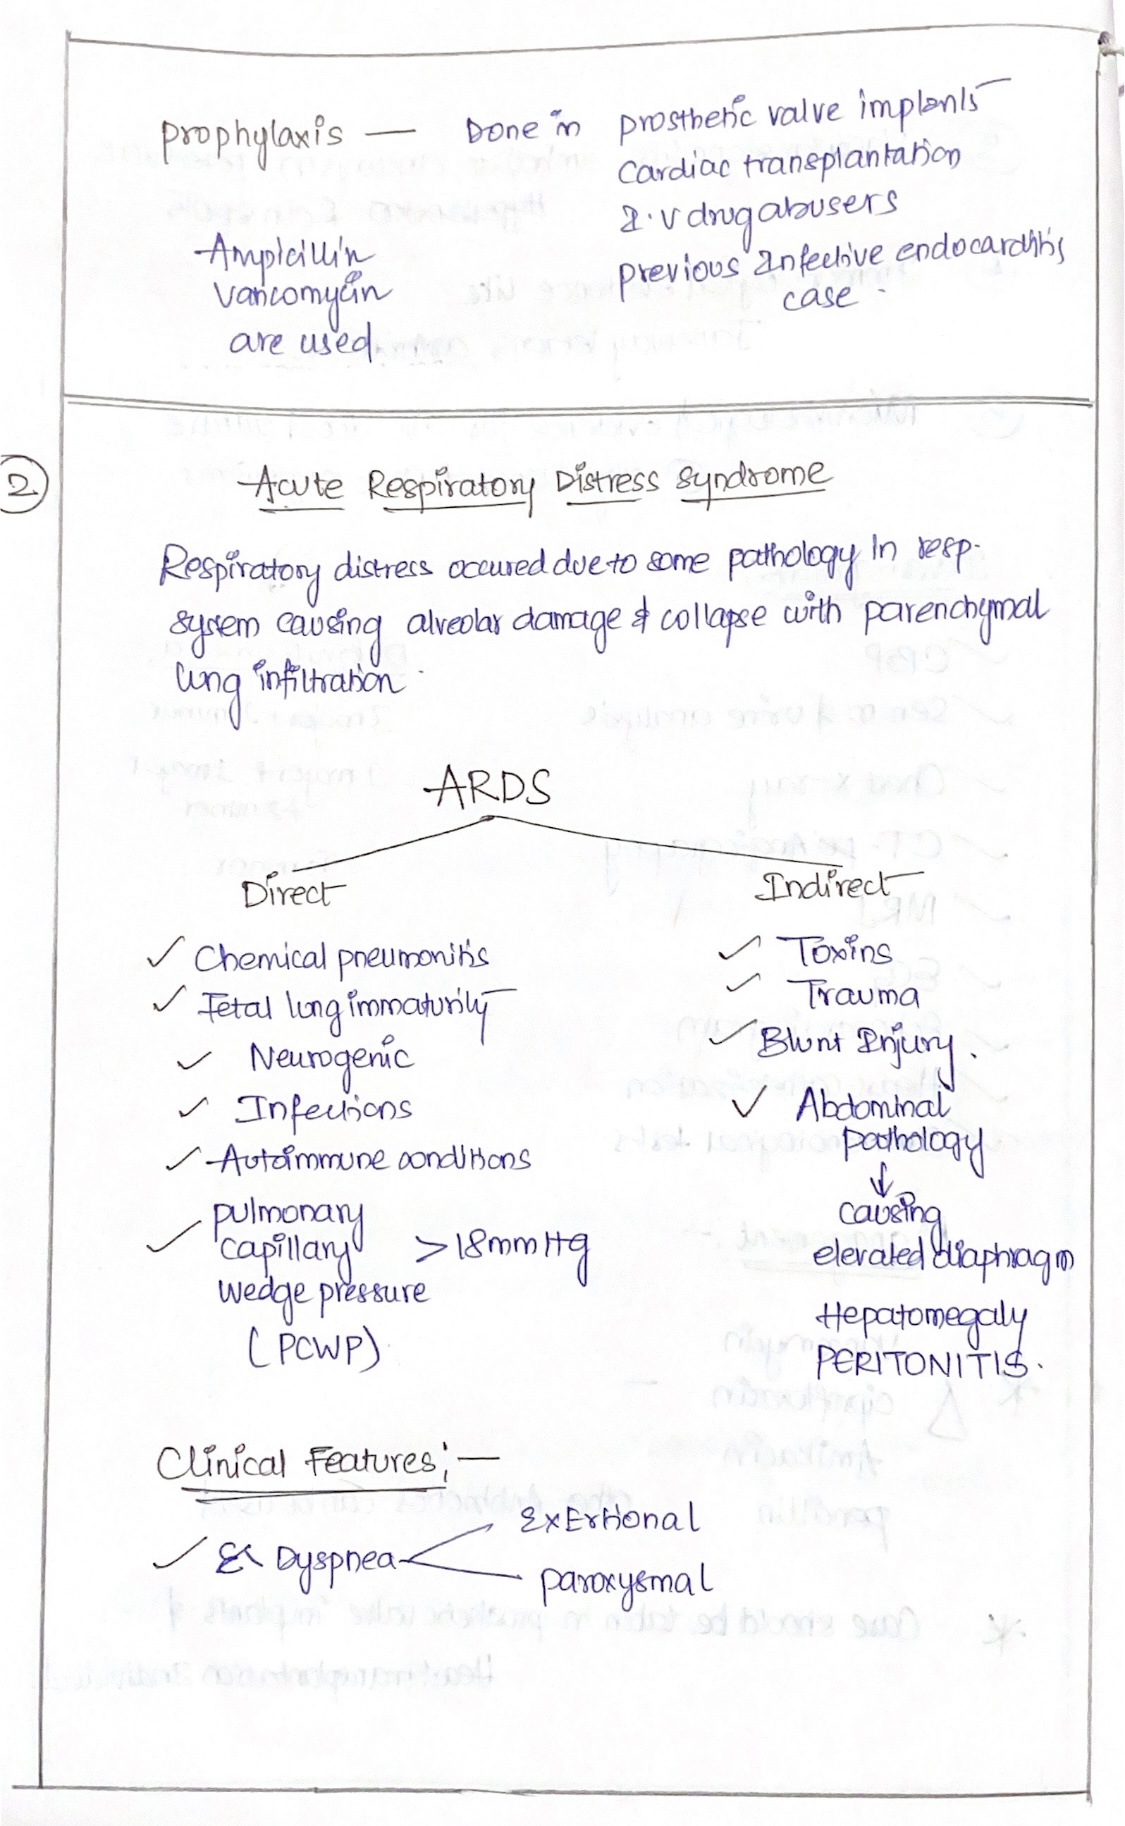 prophylaxis — Done in prosthetic valve implants
Cardiac transplantation
I.V drug abusers
previous Infective endocarditis
case.
Ampicillin
Vancomycin
are used.
2
Acute Respiratory Distress Syndrome
Respiratory distress occured due to some pathology In resp.
system causing alveolar damage & collapse with parenchymal
lung infiltration.
ARDS
Direct
✓ Chemical pneumonitis
✓ Fetal lung immaturity
✓ Neurogenic
✓ Infections
✓ Autoimmune conditions
✓ pulmonary
capillary >18mmHg
wedge pressure
(PCWP)
Indirect
✓ Toxins
✓ Trauma
✓ Blunt Injury.
✓ Abdominal
pathology
↓
causing
elevated diaphragm
Hepatomegaly
PERITONITIS.
Clinical Features;—
✓ Dyspnea
ExErtional
paroxysmal